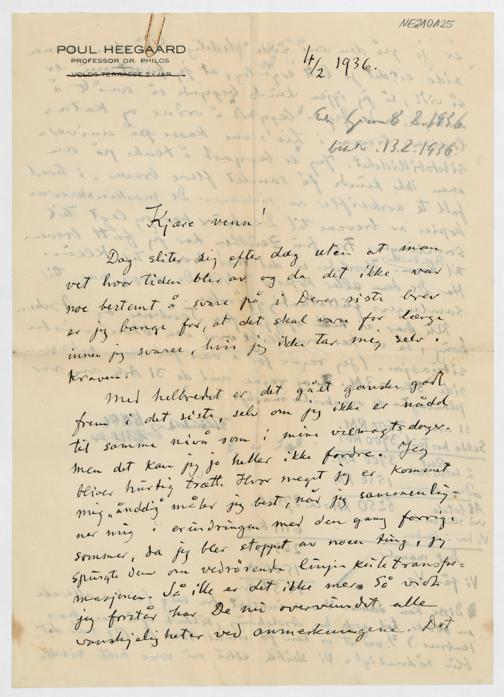 NE2A0A25
POUL HEEGAARD
PROFESSOR DR. PHILOS
VOLDS TERRASSE 3, JAR
4/2 1936.
8.2.1936.
besv. 13.2.1936.
Kjære ven!
Dag sliter sig efter dag uten at man
vet hvor tiden blev av og da det ikke var
noe bestemt å svare på i Deres siste brev
er jeg bange for, at det skal vare for længe
innen jeg svarer, hvis jeg ikke tar mig selv i
kraven.
Med helbredet er det gået ganske godt
frem i det siste, selv om jeg ikke er nådd
til samme nivå som i mine velmagtsdager.
men det kan jeg jo heller ikke fordre. Jeg
bliver hurtig træt. Hvor meget jeg er kommet
mig „åndelig" måler jeg best, når jeg sammenlig-
ner mig i erindringen med den gang forrige
sommer, da jeg blev stoppet av noen ting, jeg
spurgte dem om vedrörende
Så ille er det ikke mer. Så vidt
jeg forstår har De nu overvundet alle
vanskeligheter ved anmerkningene. Det